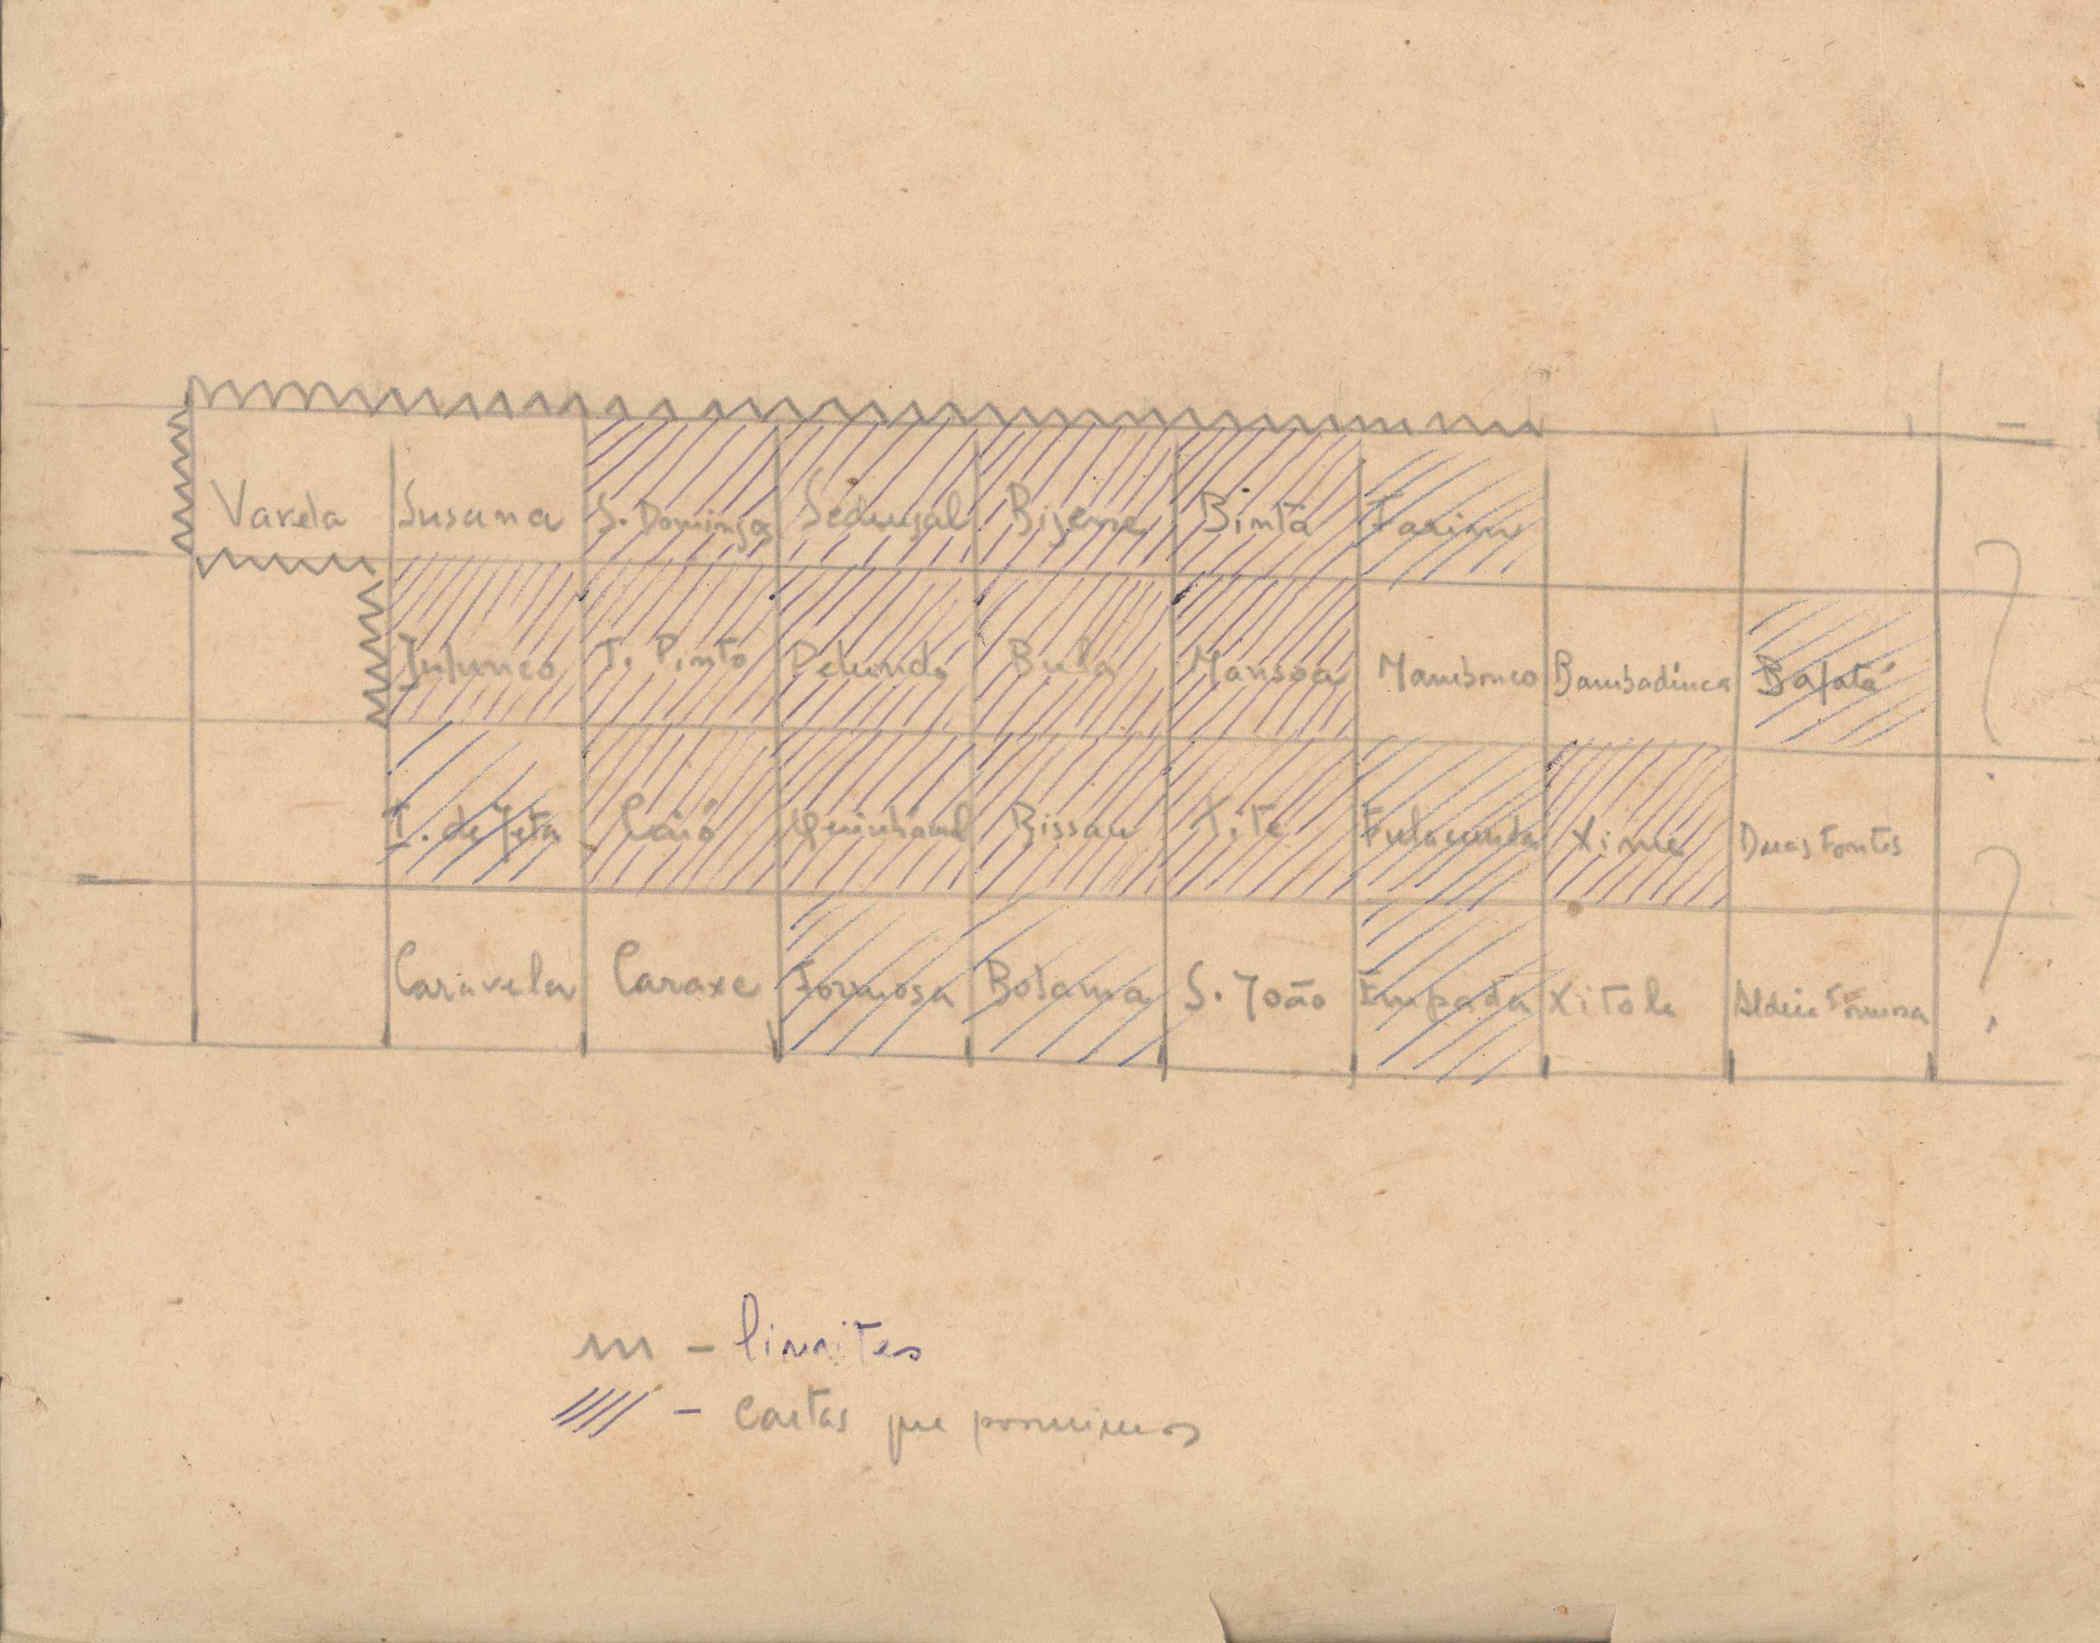 Varela Susana S. Domingos Sedengal Bigene Bintã Farim
Jufunco T. Pinto Pelundo Bula Mansoa Mambonco Bambadinca Bafatá ?
I. de Jeta Caió Quinhamel Bissau Tite Fulacunda Xime Duas Fontes
Caravela Caraxe Formosa Bolama S. João Empada Xitole Aldeia Formosa ?
m - limites
//// - cartas que possuimos